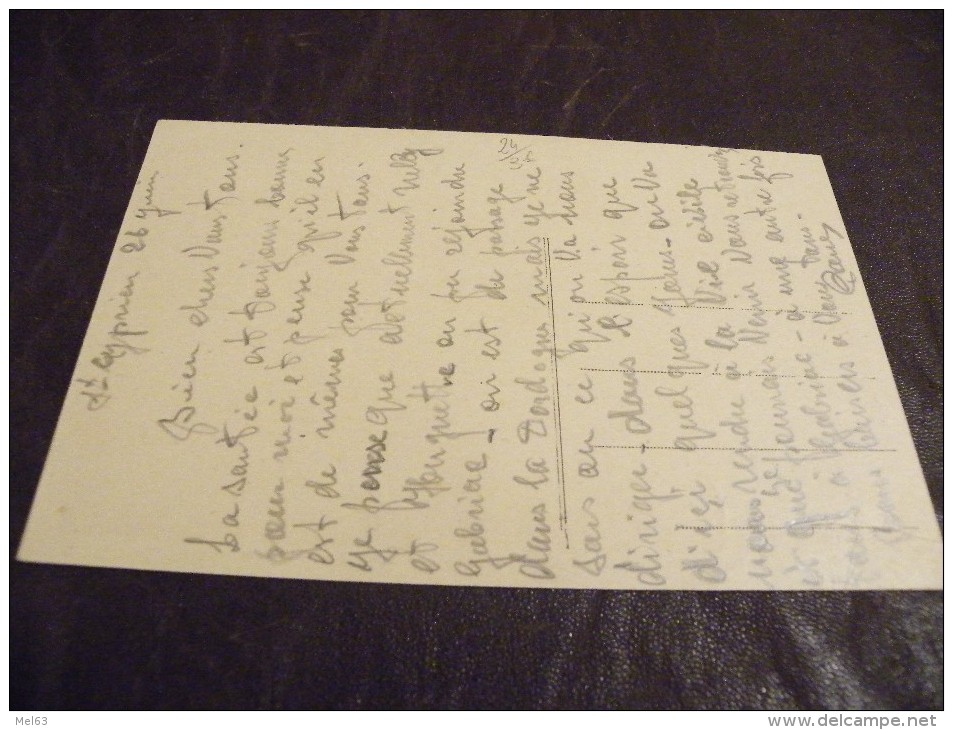 St Cyprien 26 juin
Bien chers Vous tous.
La santée est toujours bonne
pour moi et pense qu'il en
est de mêmes pour Vous tous.
Je pense que actuellement Nelly
et Mouguette on pu rejoindre
Gabriac - on est du passage
dans la Dordogne mais je ne
24
sais au ce qu'on va nous
diriger - dans l'espoir que
d'ici quelques jours - on va
nous rendre à la Vie civile
et que je pourrais Venir Vous retrouver
à Gabriac - à une autre fois
Bons Baisers à Vous Tous.
Mel63
www.delcampe.net